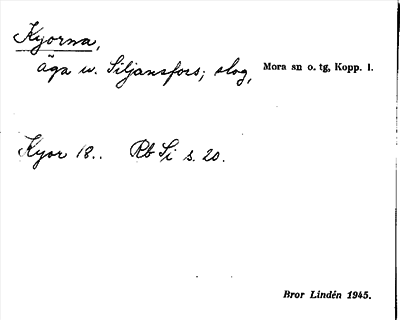 Kyorna,
äga v. Siljansfors; slog, Mora sn o. tg, Kopp. l.
Kyor 18.. Rb Si s. 20.
Bror Lindén 1945.